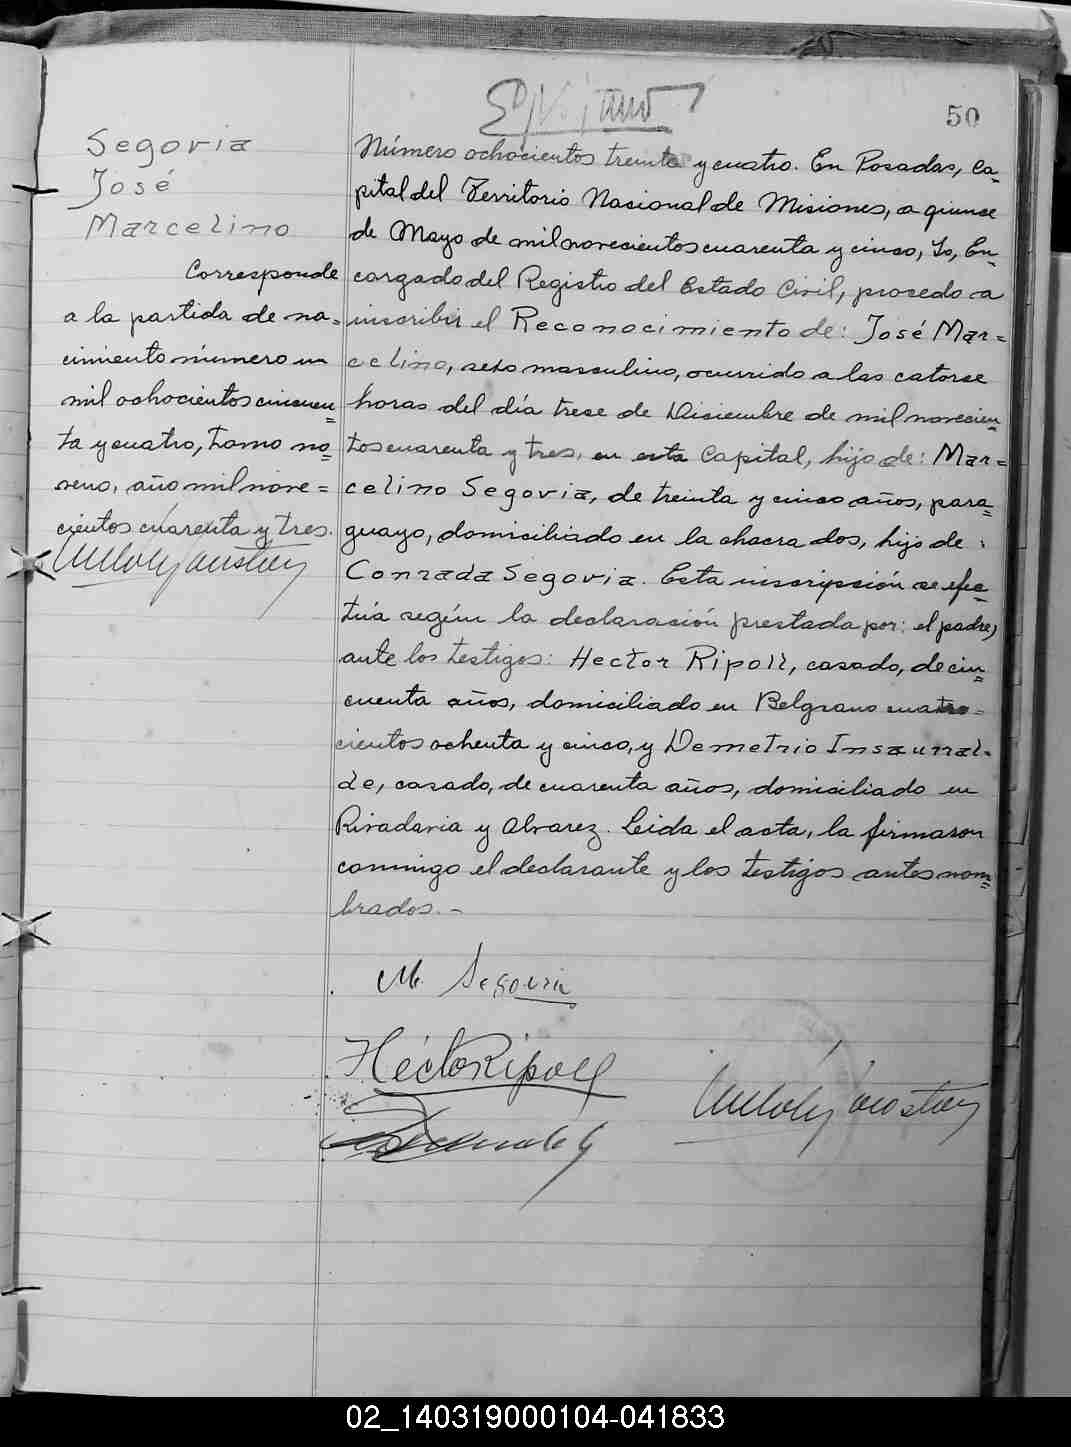 50
Segovia
José
Marcelino
Corresponde
a la partida de na=
cimiento número un
mil ochocientos cincuen=
ta y cuatro, tomo no=
veno, año mil nove=
cientos cuarenta y tres.
Número ochocientos treinta y cuatro. En Posadas, Ca=
pital del Territorio Nacional de Misiones, a quince
de Mayo de mil novecientos cuarenta y cinco, Yo, En=
cargado del Registro del Estado Civil, procedo a
inscribir el Reconocimiento de: José Mar=
celino, sexo masculino, ocurrido a las catorce
horas del día trece de Diciembre de mil novecien=
tos cuarenta y tres, en esta Capital, hijo de: Mar=
celino Segovia, de treinta y cinco años, para=
guayo, domiciliado en la chacra dos, hijo de:
Conrada Segovia. Esta inscripción se efec=
túa según la declaración prestada por: el padre,
ante los testigos: Hector Ripoll, casado, de cin=
cuenta años, domiciliado en Belgrano cuatro=
cientos ochenta y cinco, y Demetrio Insaurral=
de, casado, de cuarenta años, domiciliado en
Rivadavia y Alvarez. Leida el acta, la firmaron
conmigo el declarante y los testigos antes nom=
brados.-
M. Segovia
Héctor Ripoll
02_140319000104-041833